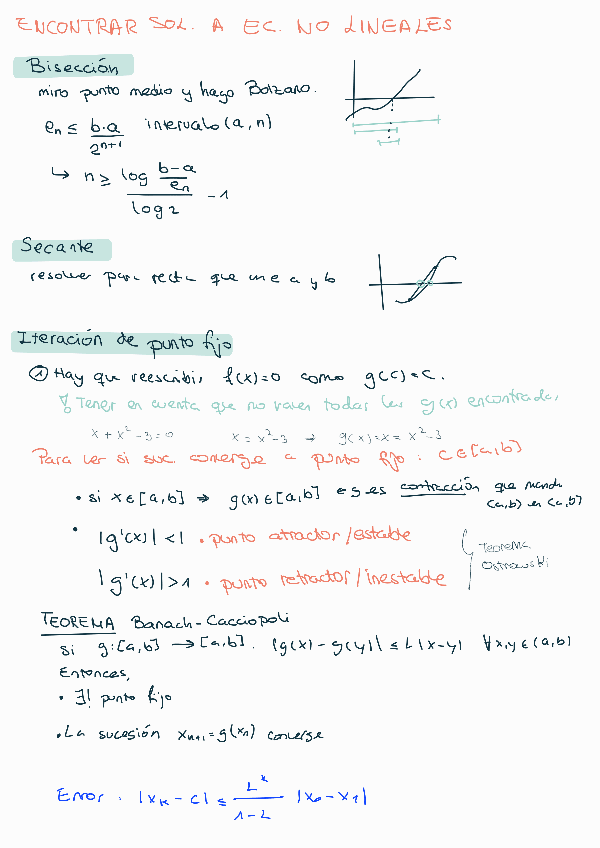 ENCONTRAR SOL. A EC. NO LINEALES
Bisección
miro punto medio y hago Bolzano.
en ≤ b-a / 2^(n+1) intervalo (a, n)
↳ n ≥ log (b-a / en) / log 2 - 1
Secante
resolver para recta que une a y b
Iteración de punto fijo
① Hay que reescribir f(x)=0 como g(c)=c.
Tener en cuenta que no valen todas las g(x) encontrada.
x + x² -3=0 x = x²-3 → g(x)=x= x²-3
Para ver si suc. converge a punto fijo: c∈[a,b]
• si x∈[a,b] ⇒ g(x)∈[a,b] es contracción que manda
[a,b] en [a,b]
• |g'(x)| < 1 • punto atractor/estable
Teorema
Ostrowski
|g'(x)| > 1 • punto retractor/inestable
TEOREMA Banach-Cacciopoli
si g:[a,b] → [a,b]. |g(x) - g(y)| ≤ L |x-y| ∀x,y∈(a,b)
Entonces,
• ∃! punto fijo
• La sucesión xn+1=g(xn) converge
Error: |xk - c| ≤ L^k / 1-L |x0-x1|